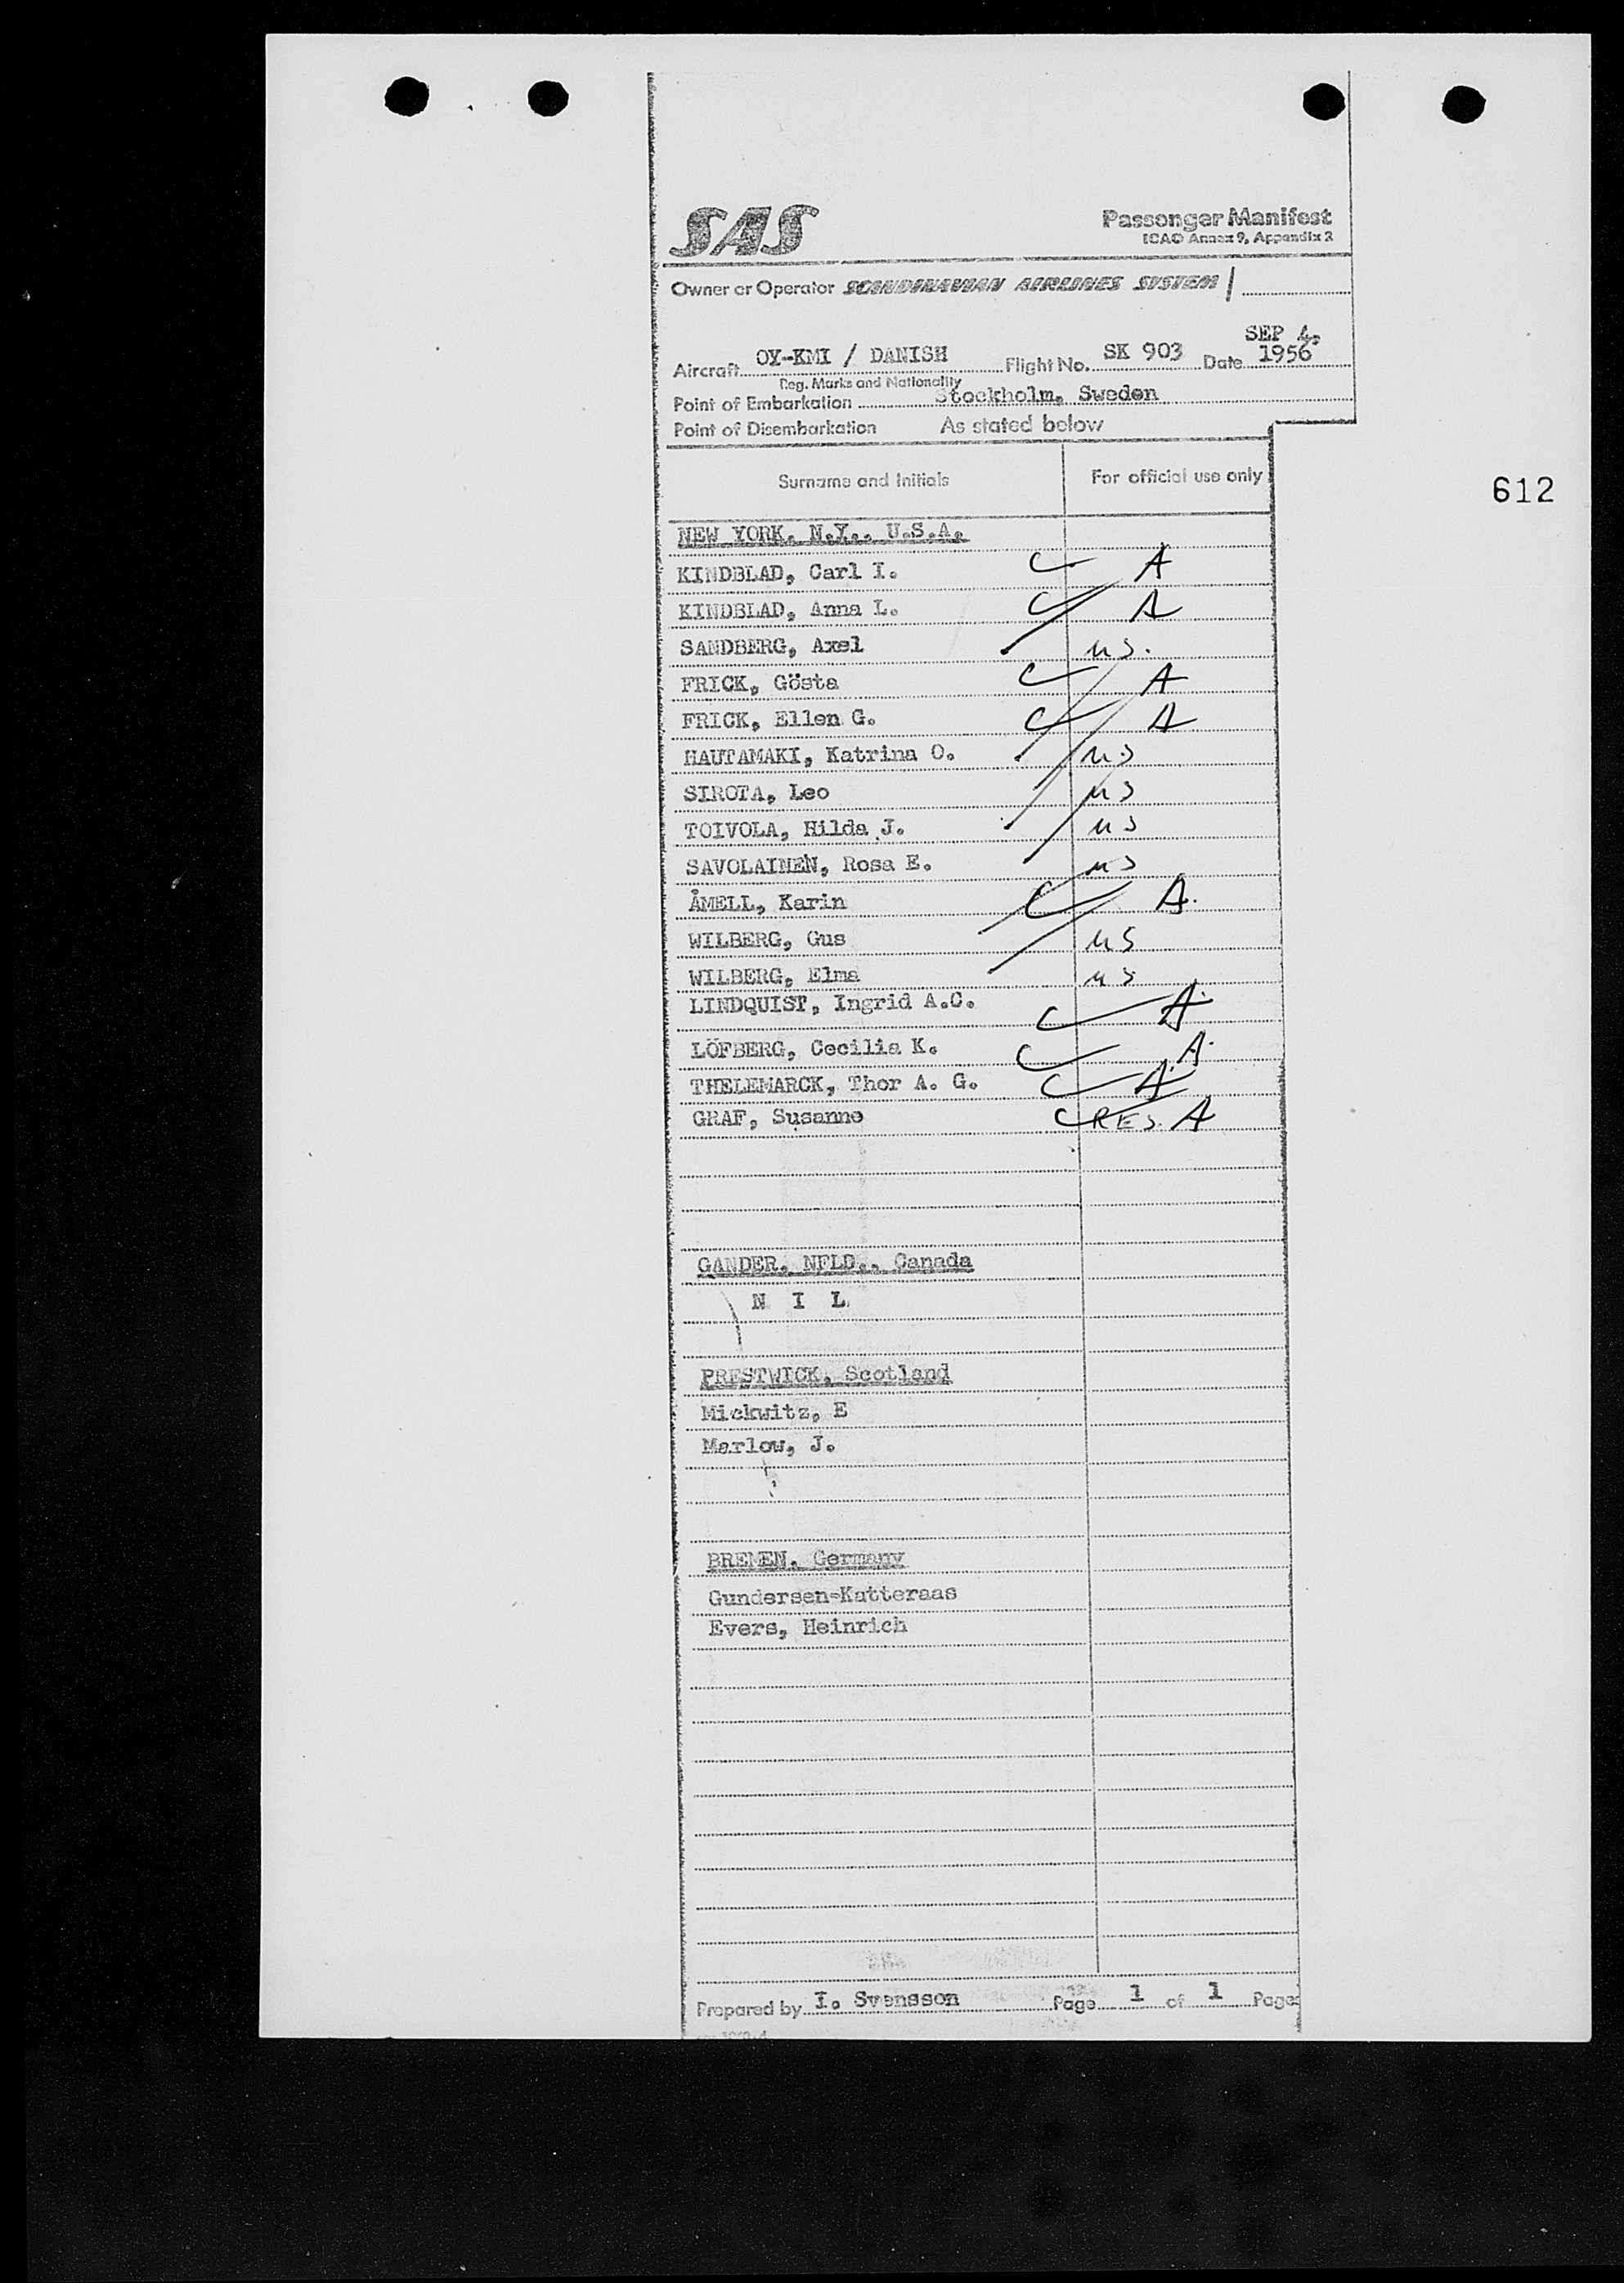 SAS
Passenger Manifest
ICAO Annex 9, Appendix 2
Owner or Operator SCANDINAVIAN AIRLINES SYSTEM
SEP 4,
Aircraft OY-KMI / DANISH Flight No. SK 903 Date 1956
Reg. Marks and Nationality
Point of Embarkation Stockholm, Sweden
Point of Disembarkation As stated below
Surname and Initials For official use only
612
NEW YORK, N.Y., U.S.A.
KINDBLAD, Carl I. A
KINDBLAD, Anna L. A
SANDBERG, Axel US.
FRICK, Gösta A
FRICK, Ellen G. A
HAUTAMAKI, Katrina O. US
SIROTA, Leo US
TOIVOLA, Hilda J. US
SAVOLAINEN, Rosa E. US
ÅMELL, Karin A.
WILBERG, Gus US
WILBERG, Elma US
LINDQUIST, Ingrid A.C. A
LÖFBERG, Cecilia K. A
THELEMARCK, Thor A. G. A
GRAF, Susanne RES. A
GANDER, NFLD., Canada
N I L
PRESTWICK, Scotland
Mickwitz, E
Marlow, J.
BREMEN, Germany
Gundersen-Katteraas
Evers, Heinrich
Prepared by I. Svensson Page 1 of 1 Pages